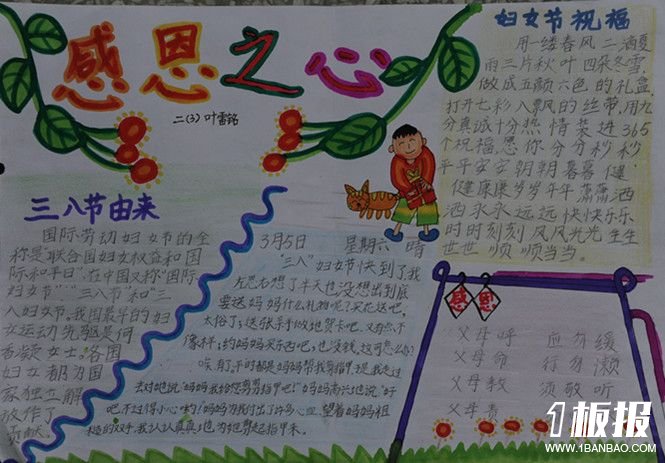 感恩之心
二(3) 叶雷铭
三八节由来
国际劳动妇女节的全
称是"联合国妇女权益和国
际和平日"在中国又称"国际
妇女节""三八节"和"三
八妇女节。我国最早的妇
女运动先驱是何
香凝女士。各国
妇女都为国
家独立解
放作了
贡献。
3月5日 星期六 晴
"三八"妇女节快到了我
左思右想了半天也没想出到底
要送妈妈什么礼物呢?买花送吧,
太俗了;送张亲手做地贺卡吧,又画不
像样;约妈妈买东西吧,也没钱,这可怎么办?
唉,有了,平时都是妈妈帮我剪指甲,现我走过
去对她说:"妈妈我给您剪剪指甲吧!"妈妈高兴地说:"好
吧,不过得小心哟!"妈妈为我们出了许多心血,望着妈妈粗
糙的双手,我认认真真地为她剪起指甲来。
妇女节祝福
用一缕春风 二滴夏
雨三片秋叶 四朵冬雪,
做成五颜六色的礼盒,
打开七彩八飘风的丝带,用九
分真诚十分热情装进365
个祝福。愿你分分秒秒
平平安安朝朝暮暮健
健康康岁岁年年潇潇洒
洒永永远远快快乐乐
时时刻刻风风光光生生
世世顺顺当当。
感恩
父母呼 应勿缓
父母命 行勿懒
父母教 须敬听
父母责
1板报
WWW.1BANBAO.COM